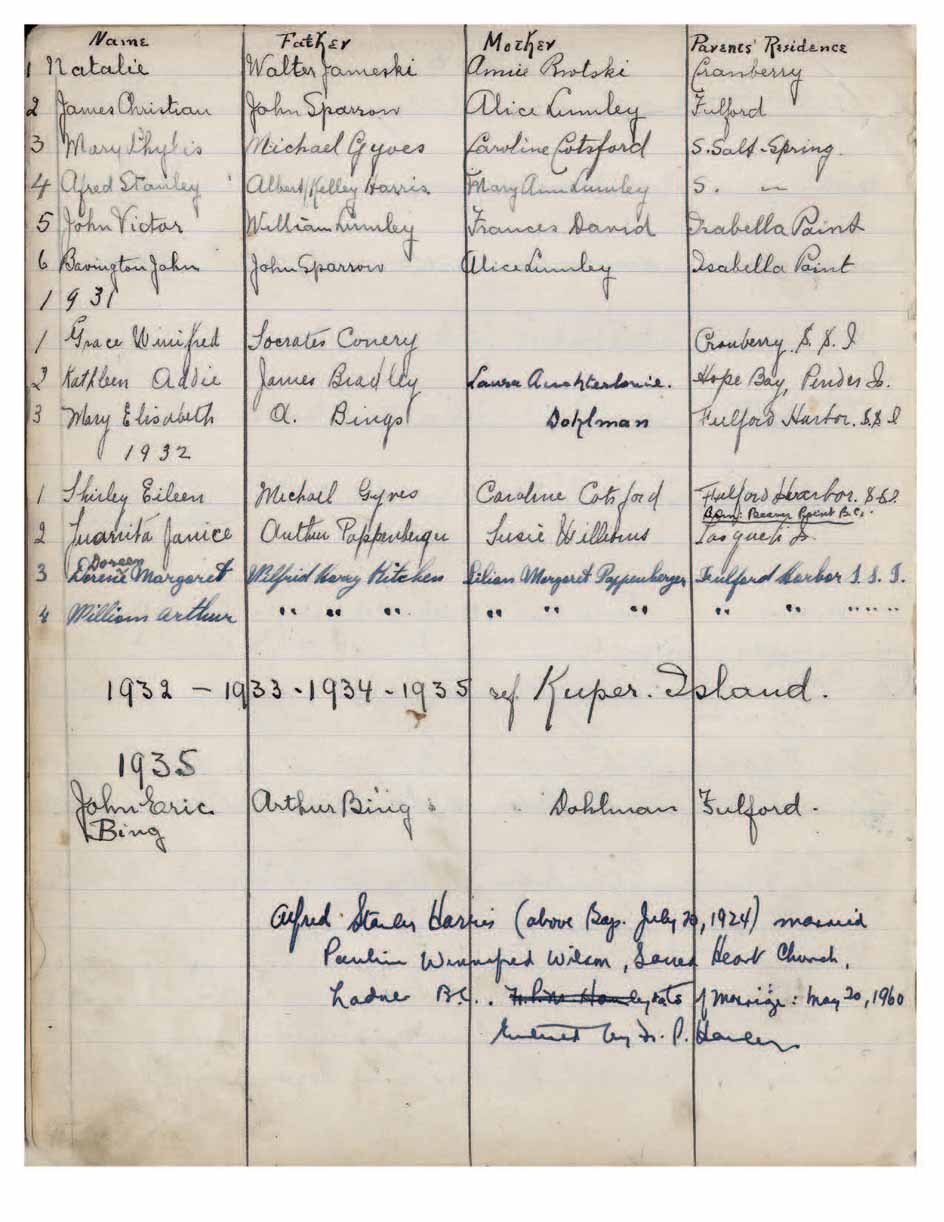 Name Father Mother Parents' Residence
1 Natalie Walter Jameski Annie Cranberry
2 James Christian John Sparrow Alice Lumley Fulford
3 Mary Phylis Michael Gyves Caroline Cotsford S. Salt-Spring.
4 Alfred Stanley Albert Kelley Harris Mary Ann Lumley S. "
5 John Victor William Lumley Frances David Isabella Point
6 Bavington John John Sparrow Alice Lumley Isabella Point
1931
1 Grace Winifred Socrates Conery Cranberry S. S. I
2 Kathleen Addie James Bradley Laura Auchterlonie. Hope Bay, Pender Is.
3 Mary Elisabeth A. Bings Dohlman Fulford Harbor. S.S I
1932
1 Shirley Eileen Michael Gyves Caroline Cotsford Fulford Harbor. S.S.I.
Born: Beaver Point B.C.
2 Juanita Janice Arthur Pappenberger Susie Williams Lasqueti Is
Doreen
3 Margaret Wilfrid Kitchen Lilian Margaret Pappenberger Fulford Harbor S. S. I.
4 William Arthur " " " " " " " " " " " "
1932 - 1933 - 1934 - 1935 ref. Kuper. Island.
1935
John Eric Arthur Bing Dohlman Fulford.
Bing
Alfred Stanley Harris (above Bap. July 20, 1924) married
Pauline Winnifred Wilson, Sacred Heart Church,
Ladner B.C.. of marriage: May 20, 1960
Entered by Fr. P. Hanley